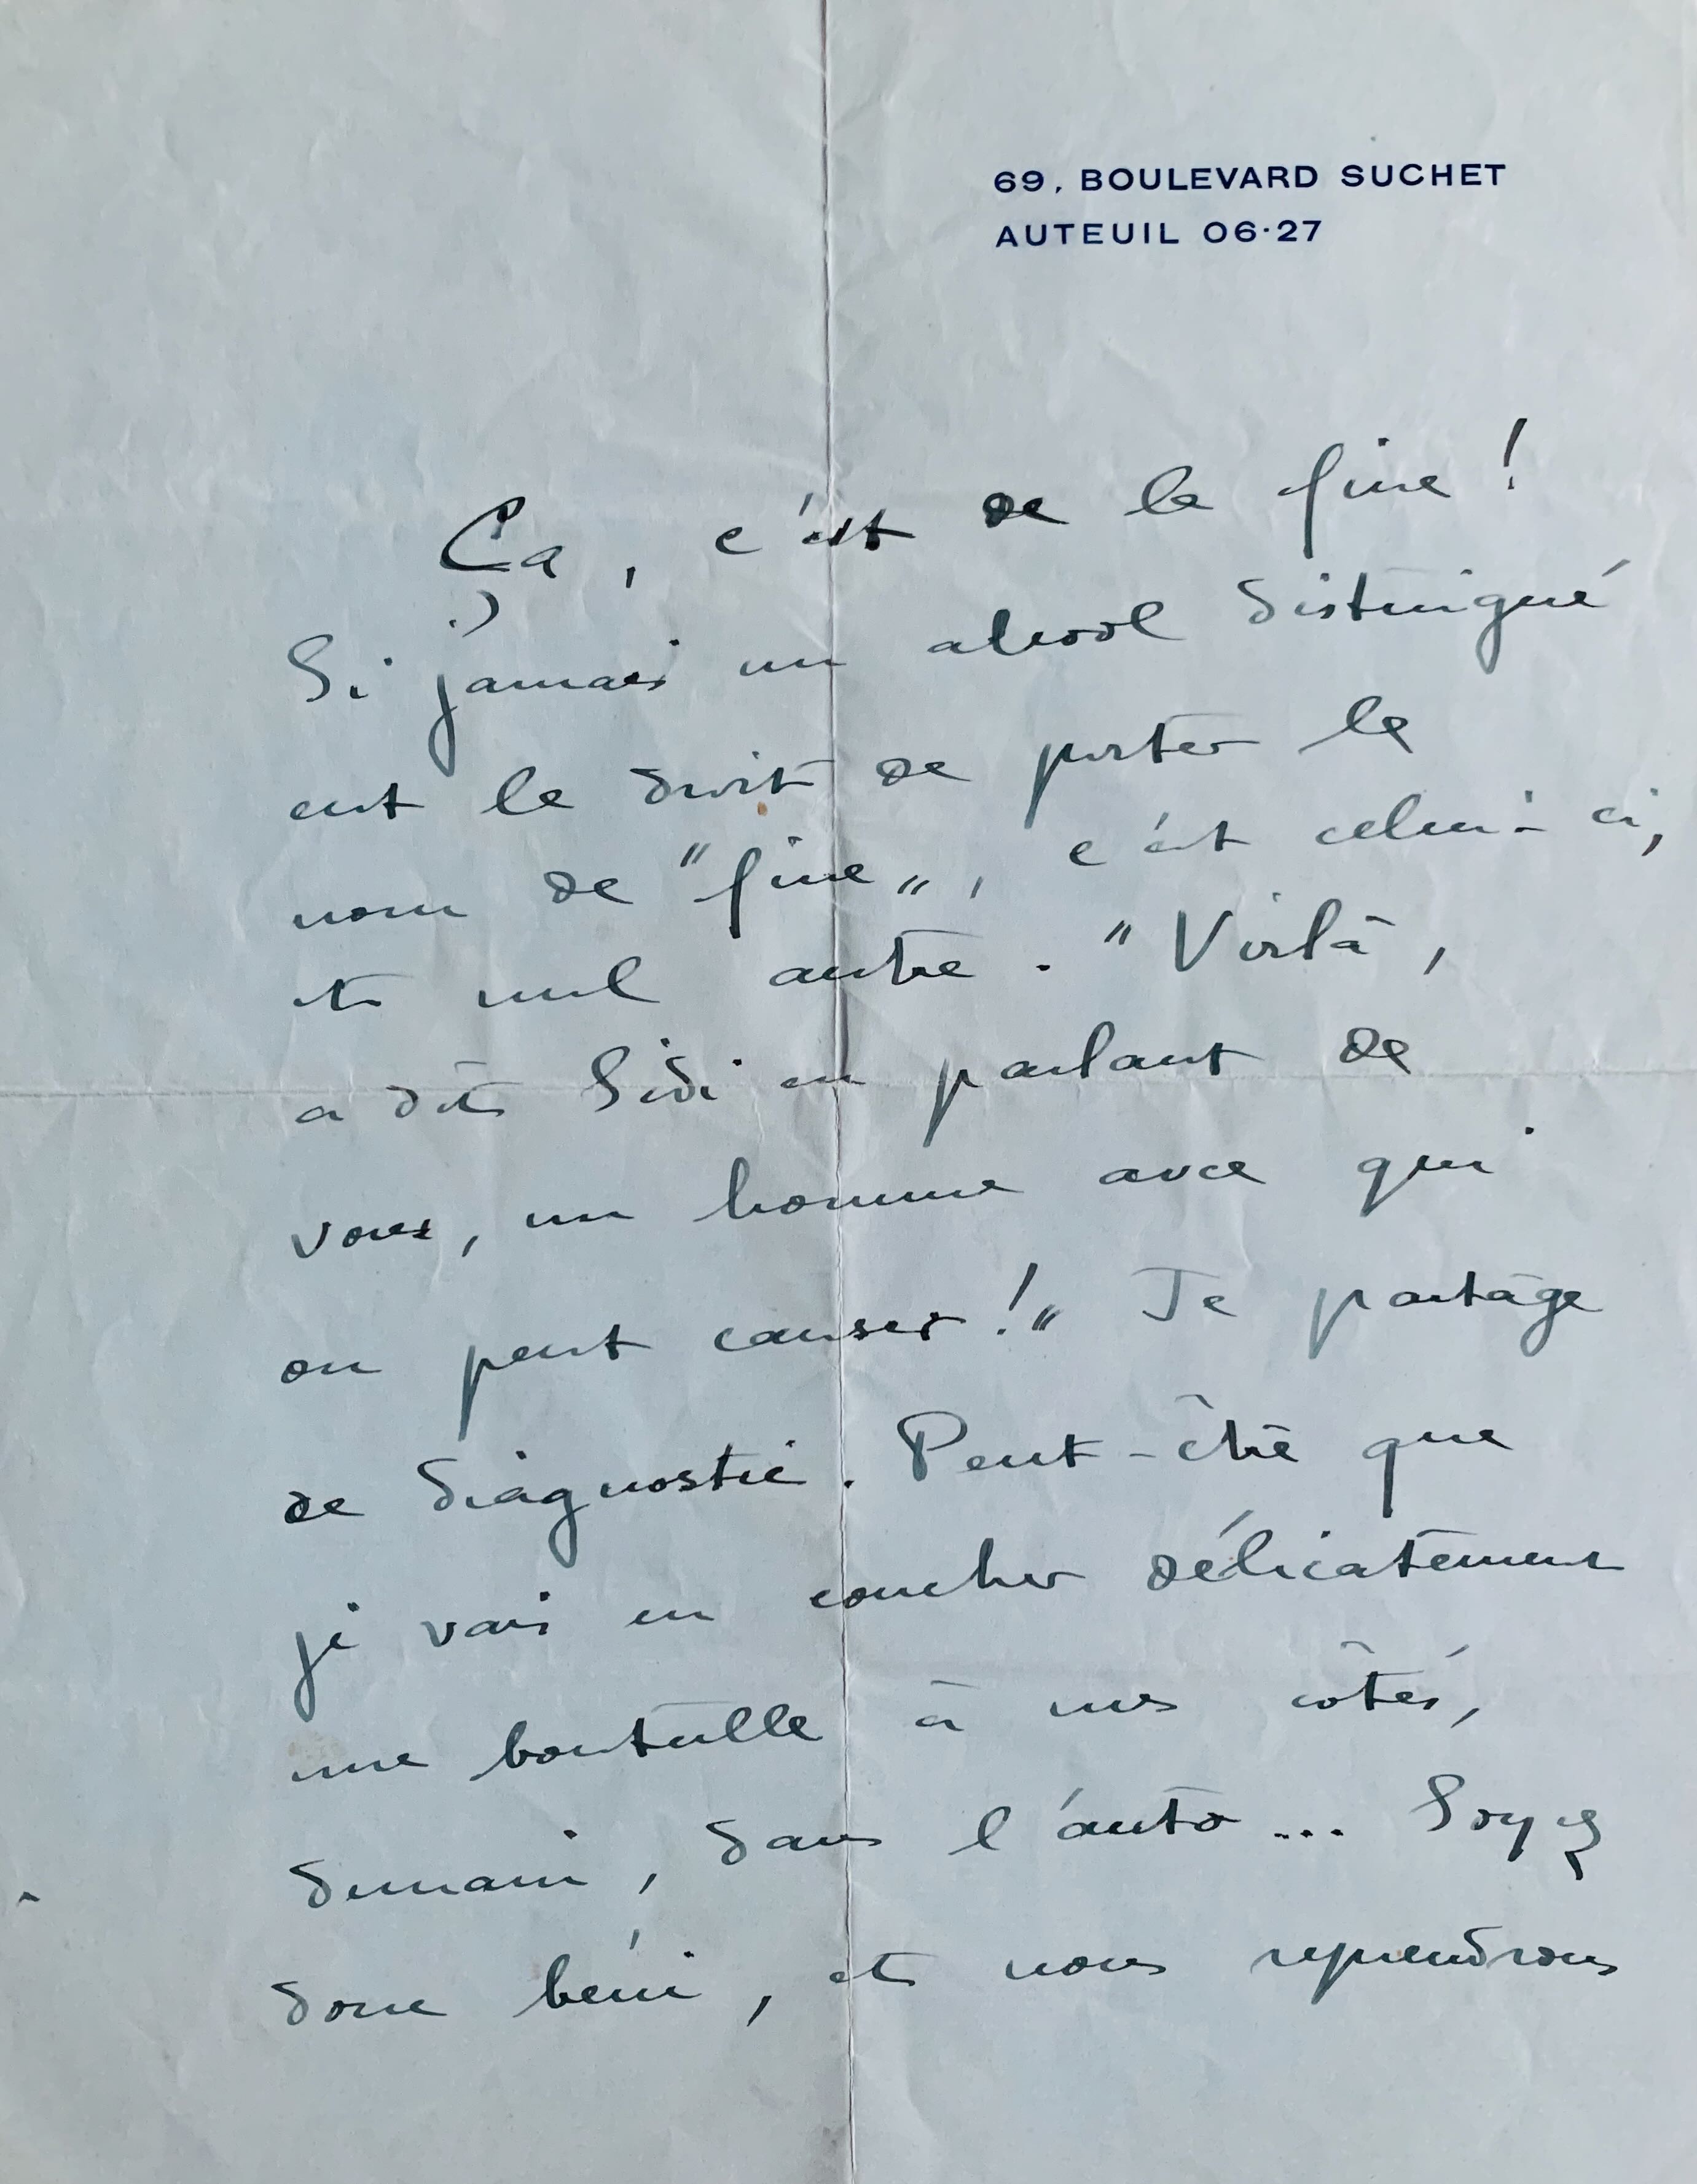 69, BOULEVARD SUCHET
AUTEUIL 06·27
Ça, c'est de la fine !
Si jamais un alcool distingué
eut le droit de porter le
nom de "fine", c'est celui-ci,
et nul autre. "Voilà,
a dit Sidi en parlant de
vous, un homme avec qui
on peut causer !" Je partage
ce diagnostic. Peut-être que
je vais en coucher délicatement
une bouteille à mes côtés,
demain, dans l'auto... Soyez
donc béni, et nous reprendrons